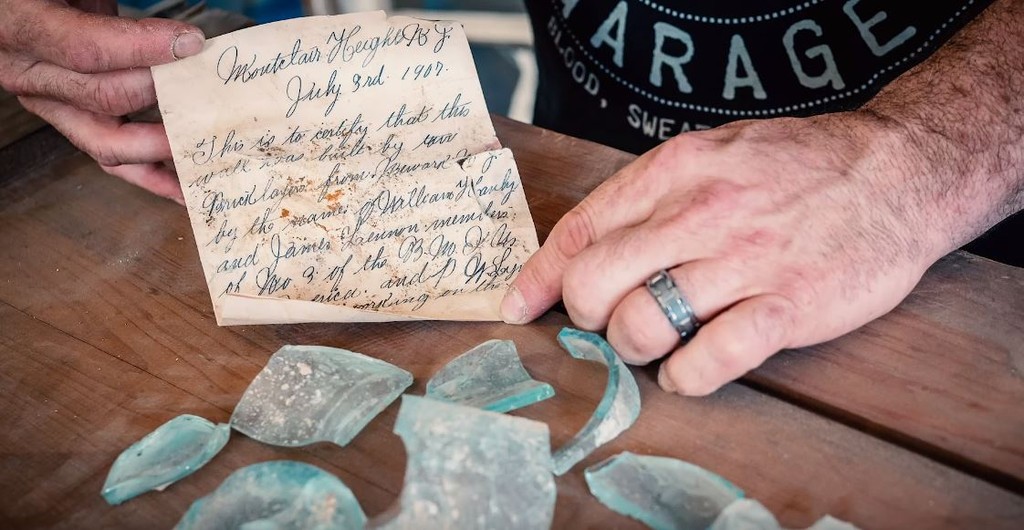 Montclair Heights N J
July 3rd. 1907.
This is to certify that this
wall was built by two
Bricklayers from Newark N J
by the names of William Hanly
and James Lennon members
of No 3 of the B. M. I. U.
erica. and P
working on the
GARAGE
BLOOD, SWEA